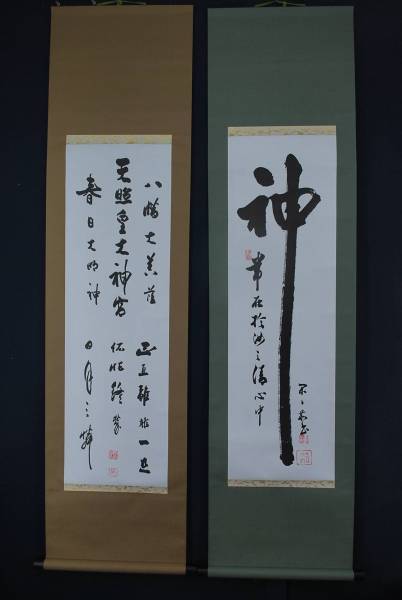 神
常在於汝之清心中
天照皇大神宮
八幡大菩薩
正直雖非一旦
依怙終蒙
日月之憐
春日大明神